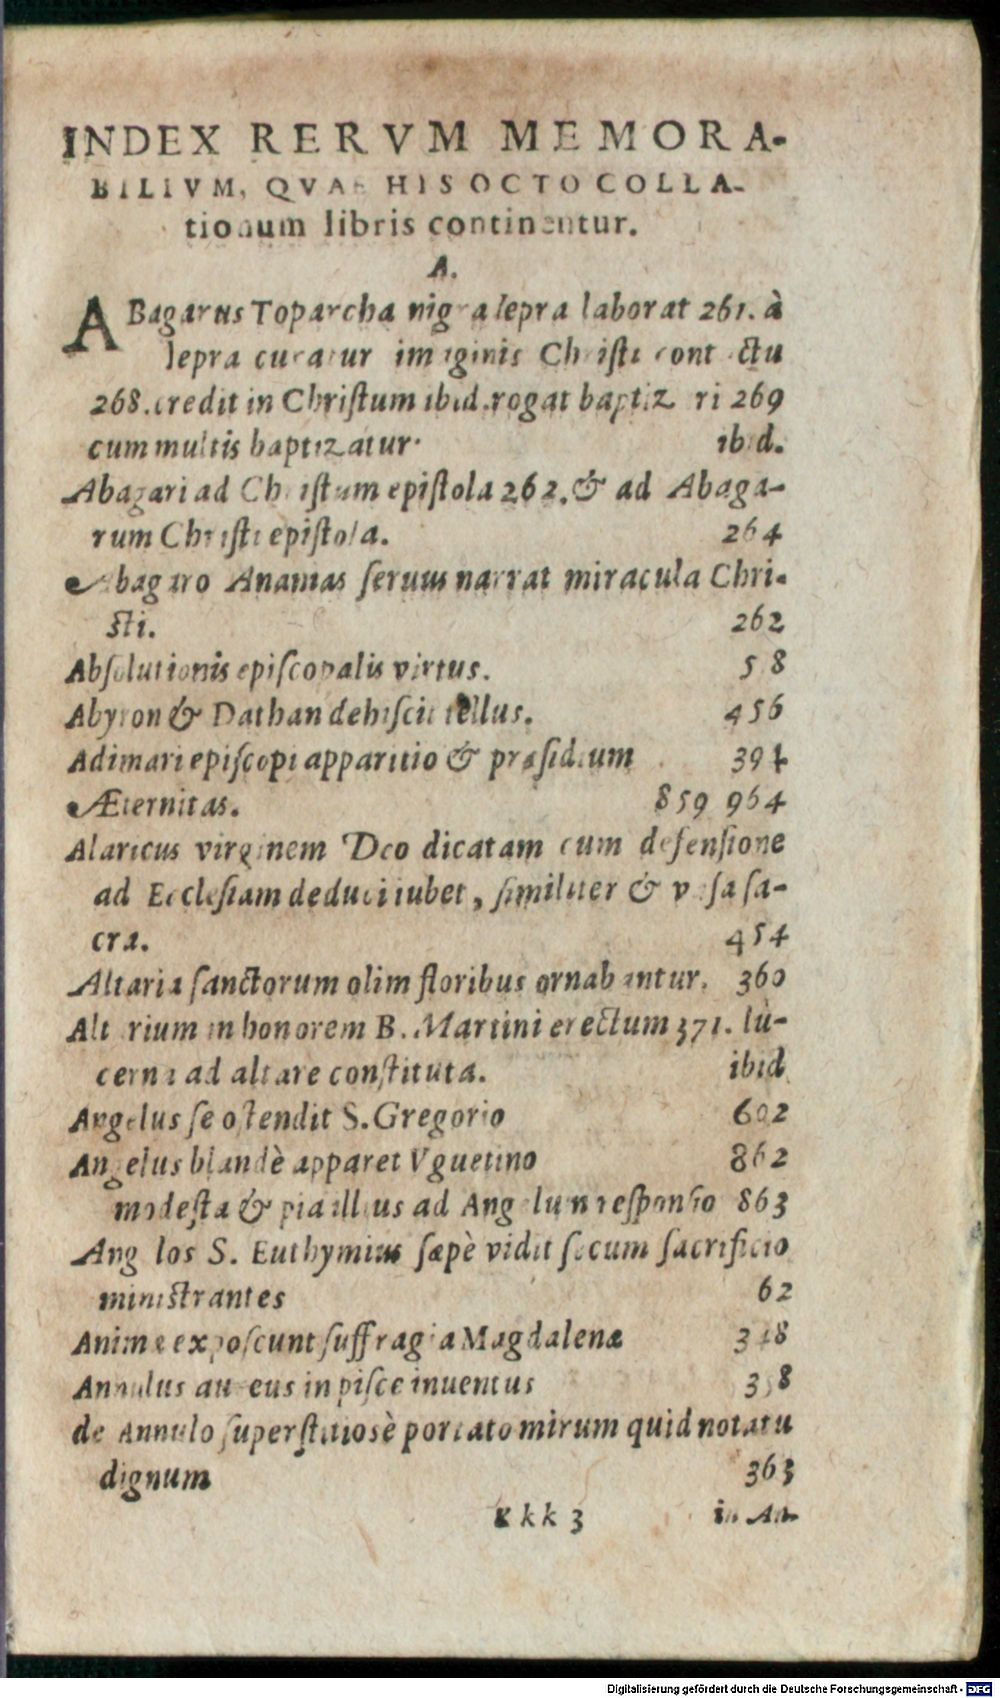 INDEX RERVM MEMORA-
BILIVM, QVAE HIS OCTO COLLA-
tionum libris continentur.
A.
ABagarus Toparcha nigra lepra laborat 261. à
lepra curatur imaginis Christi contactu
268. credit in Christum ibid. rogat baptizari 269
cum multis baptizatur. ibid.
Abagari ad Christum epistola 262. & ad Abaga-
rum Christi epistola. 264
Abagaro Ananias seruus narrat miracula Chri-
sti. 262
Absolutionis episcopalis virtus. 58
Abyron & Dathan dehiscit tellus. 456
Adimari episcopi apparitio & præsidium
Æternitas. 859 964
Alaricus virginem Deo dicatam cum defensione
ad Ecclesiam deduci iubet, similiter & vasa sa-
cra. 454
Altaria sanctorum olim floribus ornabantur. 360
Altarium in honorem B. Martini erectum 371. lu-
cerna ad altare constituta. ibid
Angelus se ostendit S. Gregorio 602
Angelus blandè apparet Vguetino 862
modesta & pia illius ad Angelum responsio 863
Angelos S. Euthymius sæpè vidit secum sacrificio
ministrantes 62
Animæ exposcunt suffragia Magdalenæ
Annulus aureus in pisce inuentus
de Annulo superstitiosè portato mirum quid notatu
dignum 363
Kkk 3 in An-
Digitalisierung gefördert durch die Deutsche Forschungsgemeinschaft - DFG